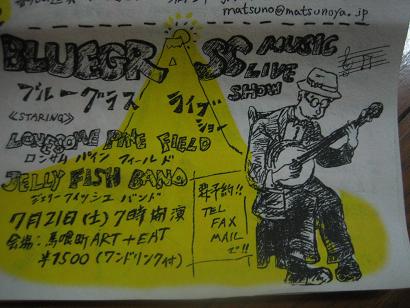 matsuno@matsunoya.jp
BLUEGRASS MUSIC
LIVE
SHOW
ブルーグラス ライブ
ショー
≪STARING≫
LONESOME PINE FIELD
ロンサム パイン フィールド
JELLY FISH BAND
ジェリーフィッシュ バンド
7月21日(土) 7時開演
会場:馬喰町ART+EAT
¥1500 (ワンドリンク付)
要予約!!
TEL
FAX
MAIL
で!!